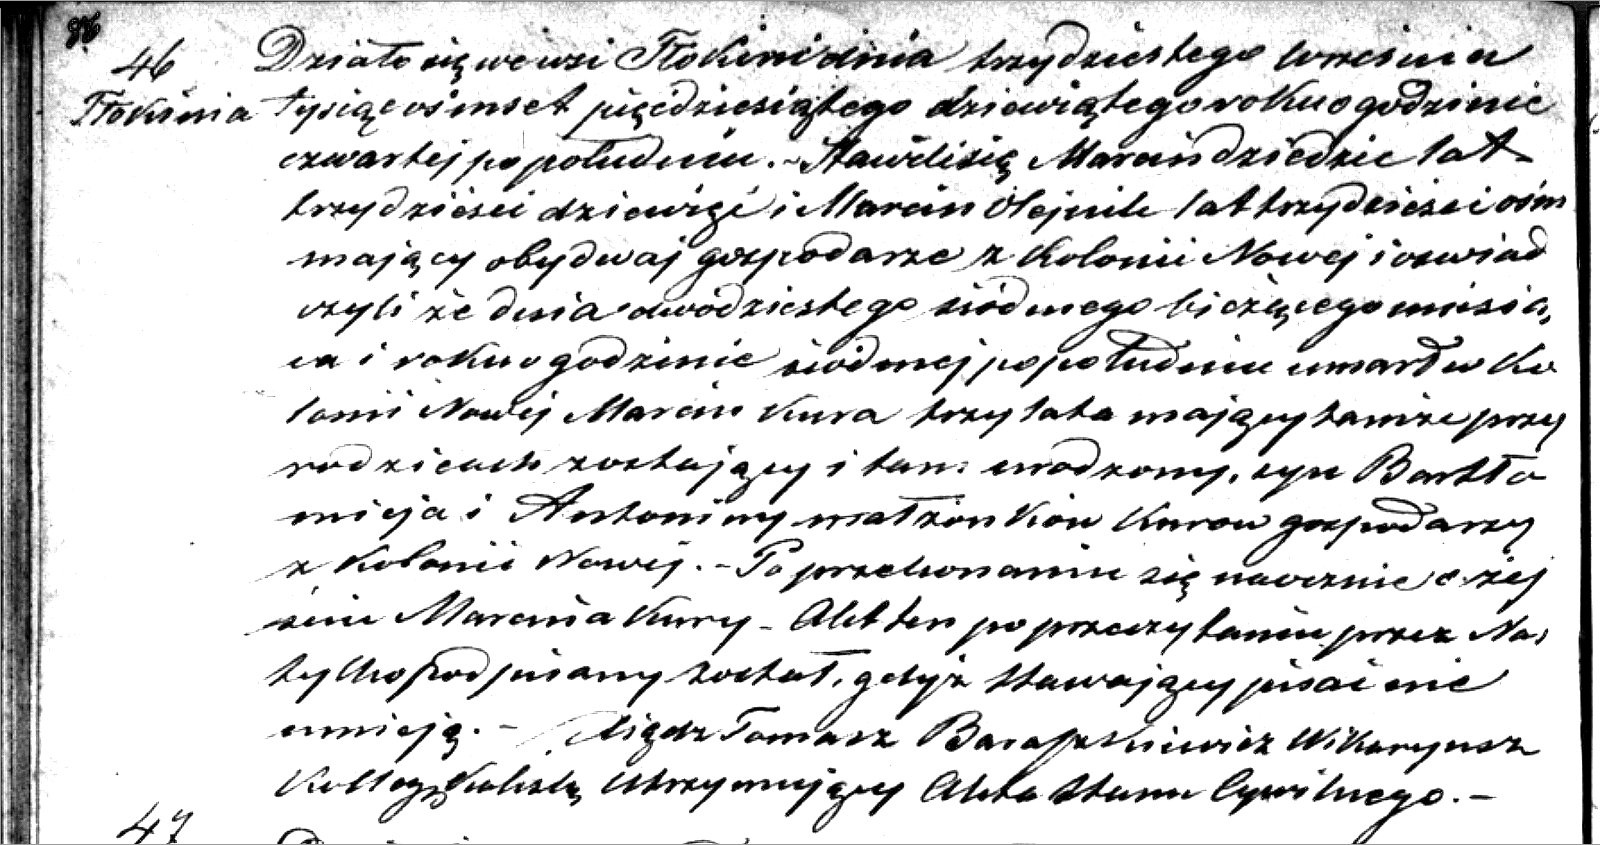 46 Działo się we wsi Tłokini dnia trzydziestego Września
Tłokinia tysiąc ośmset pięćdziesiątego dziewiątego roku o godzinie
czwartej po południu. - Stawili się Marcin Dziedzic lat
trzydzieści dziewięć i Marcin Olejnik lat trzydzieści ośm
mający obydwaj gospodarze z Kolonii Nowej i oswiad
czyli że dnia dwódziestego siódmego bieżącego miesią,
ca i roku o godzinie siódmej po południu umarł w Ko
lonii Nowej Marcin Kura trzy lata mający tamże przy
rodzicach zostający i tam urodzony, syn Bartło
mieja i Antoniny małżonków Kurow gospodarzy
z Kolonii Nowej. - Po przekonaniu się naocznie o zej
ściu Marcina Kury - Akt ten po przeczytaniu przez Nas
tylko podpisany został, gdyż Stawający pisać nie
umieją. - Xiądz Tomasz Wikaryusz
Kolleg. Kaliskiej Utrzymujący Akta Stanu Cywilnego. -
47